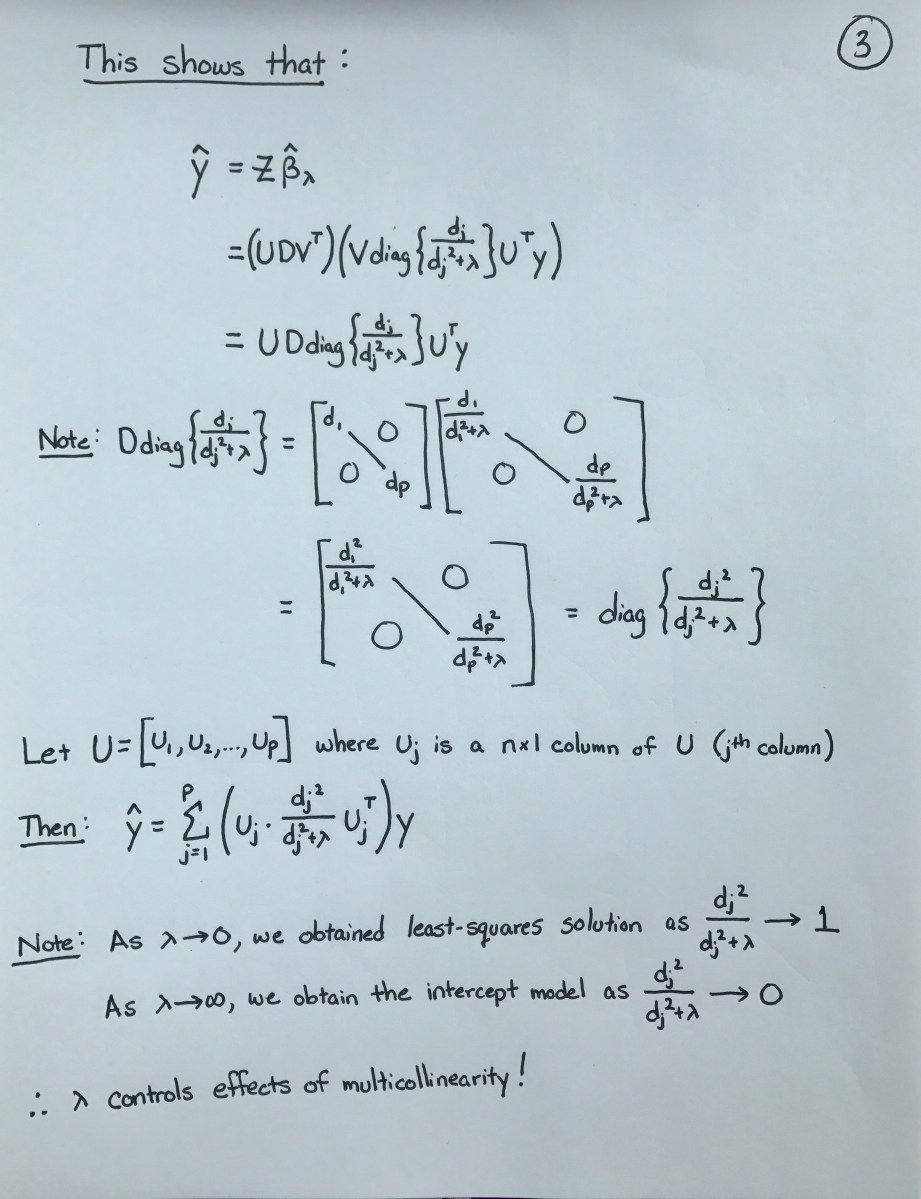 ③
This shows that :
ŷ = Zβ̂_λ
= (UDVᵀ)(V diag{d_j / (d_j² + λ)}Uᵀy)
= UD diag{d_j / (d_j² + λ)}Uᵀy
Note: D diag{d_j / (d_j² + λ)} = [d₁ 0 0 d_p] [d₁ / (d₁² + λ) 0 0 d_p / (d_p² + λ)]
= [d₁² / (d₁² + λ) 0 0 d_p² / (d_p² + λ)] = diag {d_j² / (d_j² + λ)}
Let U = [U₁, U₂, ..., U_p] where U_j is a n×1 column of U (jᵗʰ column)
Then: ŷ = Σ_{j=1}^{p} (U_j · d_j² / (d_j² + λ) U_jᵀ) y
Note: As λ→0, we obtained least-squares solution as d_j² / (d_j² + λ) → 1
As λ→∞, we obtain the intercept model as d_j² / (d_j² + λ) → 0
∴ λ controls effects of multicollinearity!